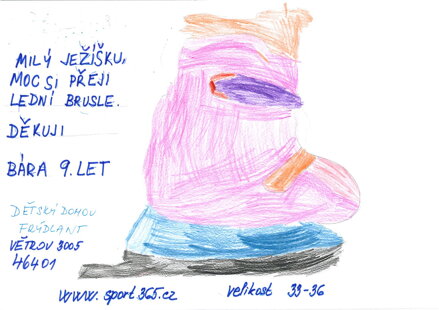 MILÝ JEŽÍŠKU,
MOC SI PŘEJI
LEDNÍ BRUSLE.
DĚKUJI
BÁRA 9. LET
DĚTSKÝ DOMOV
FRÝDLANT
VĚTROV 3005
46401
www.sport365.cz velikost 33-36